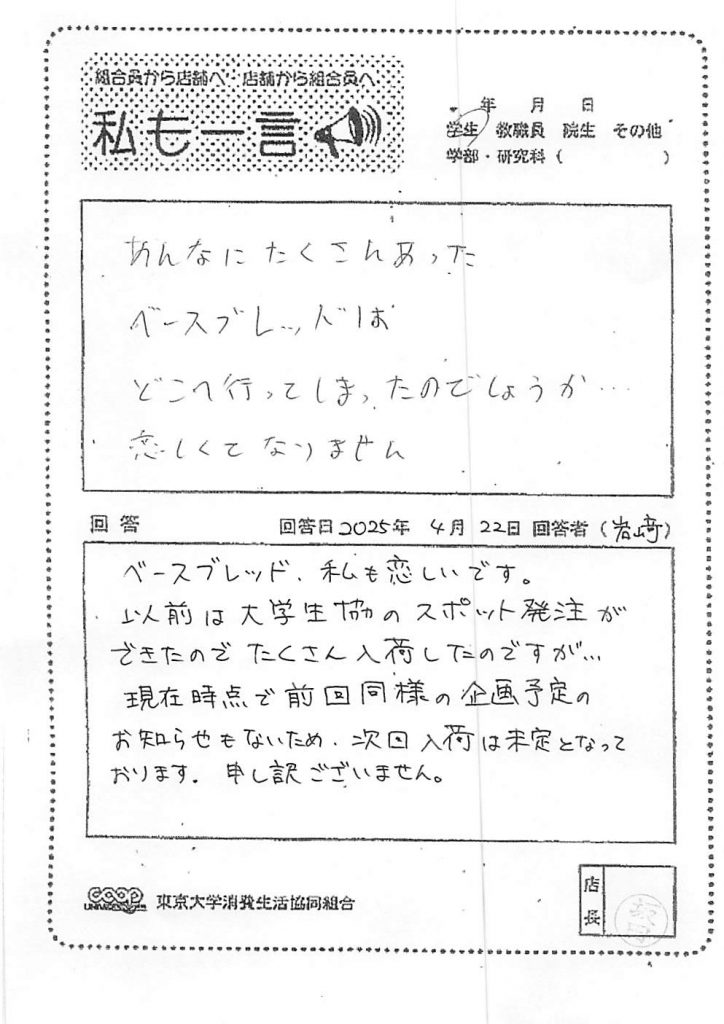 組合員から店舗へ・店舗から組合員へ
私も一言
年 月 日
学生 教職員 院生 その他
学部・研究科( )
あんなにたくさんあった
ベースブレッドは
どこへ行ってしまったのでしょうか…
恋しくてなりません
回答 回答日2025年 4月 22日 回答者(岩崎)
ベースブレッド、私も恋しいです。
以前は大学生協のスポット発注が
できたのでたくさん入荷したのですが…
現在時点で前回同様の企画予定の
お知らせもないため、次回入荷は未定となって
おります。申し訳ございません。
COOP 東京大学消費生活協同組合
店長